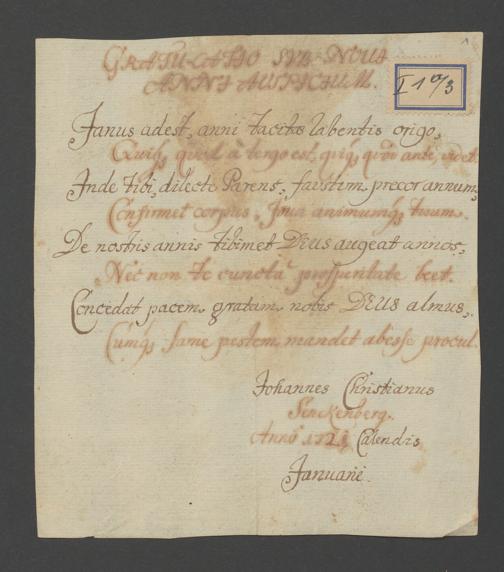 GRATULATIO SUB NOVI
ANNI AUSPICIUM.
I 1 a/3
Janus adest, anni tacite labentis origo,
Quiq, quod à tergo est, quiq, quod ante, videt
Inde tibi, dilecte Parens, faustum precor annum,
Confirmet corpus, Jova animumq, tuum.
De nostis annis tibimet DEUS augeat annos,
Nec non te cuncta prosperitate beet.
Concedat pacem gratam nobis DEUS almus,
Cumq, fame pestem mandet abesse procul.
Johannes Christianus
Senckenberg.
Anno Calendis
Januarii.